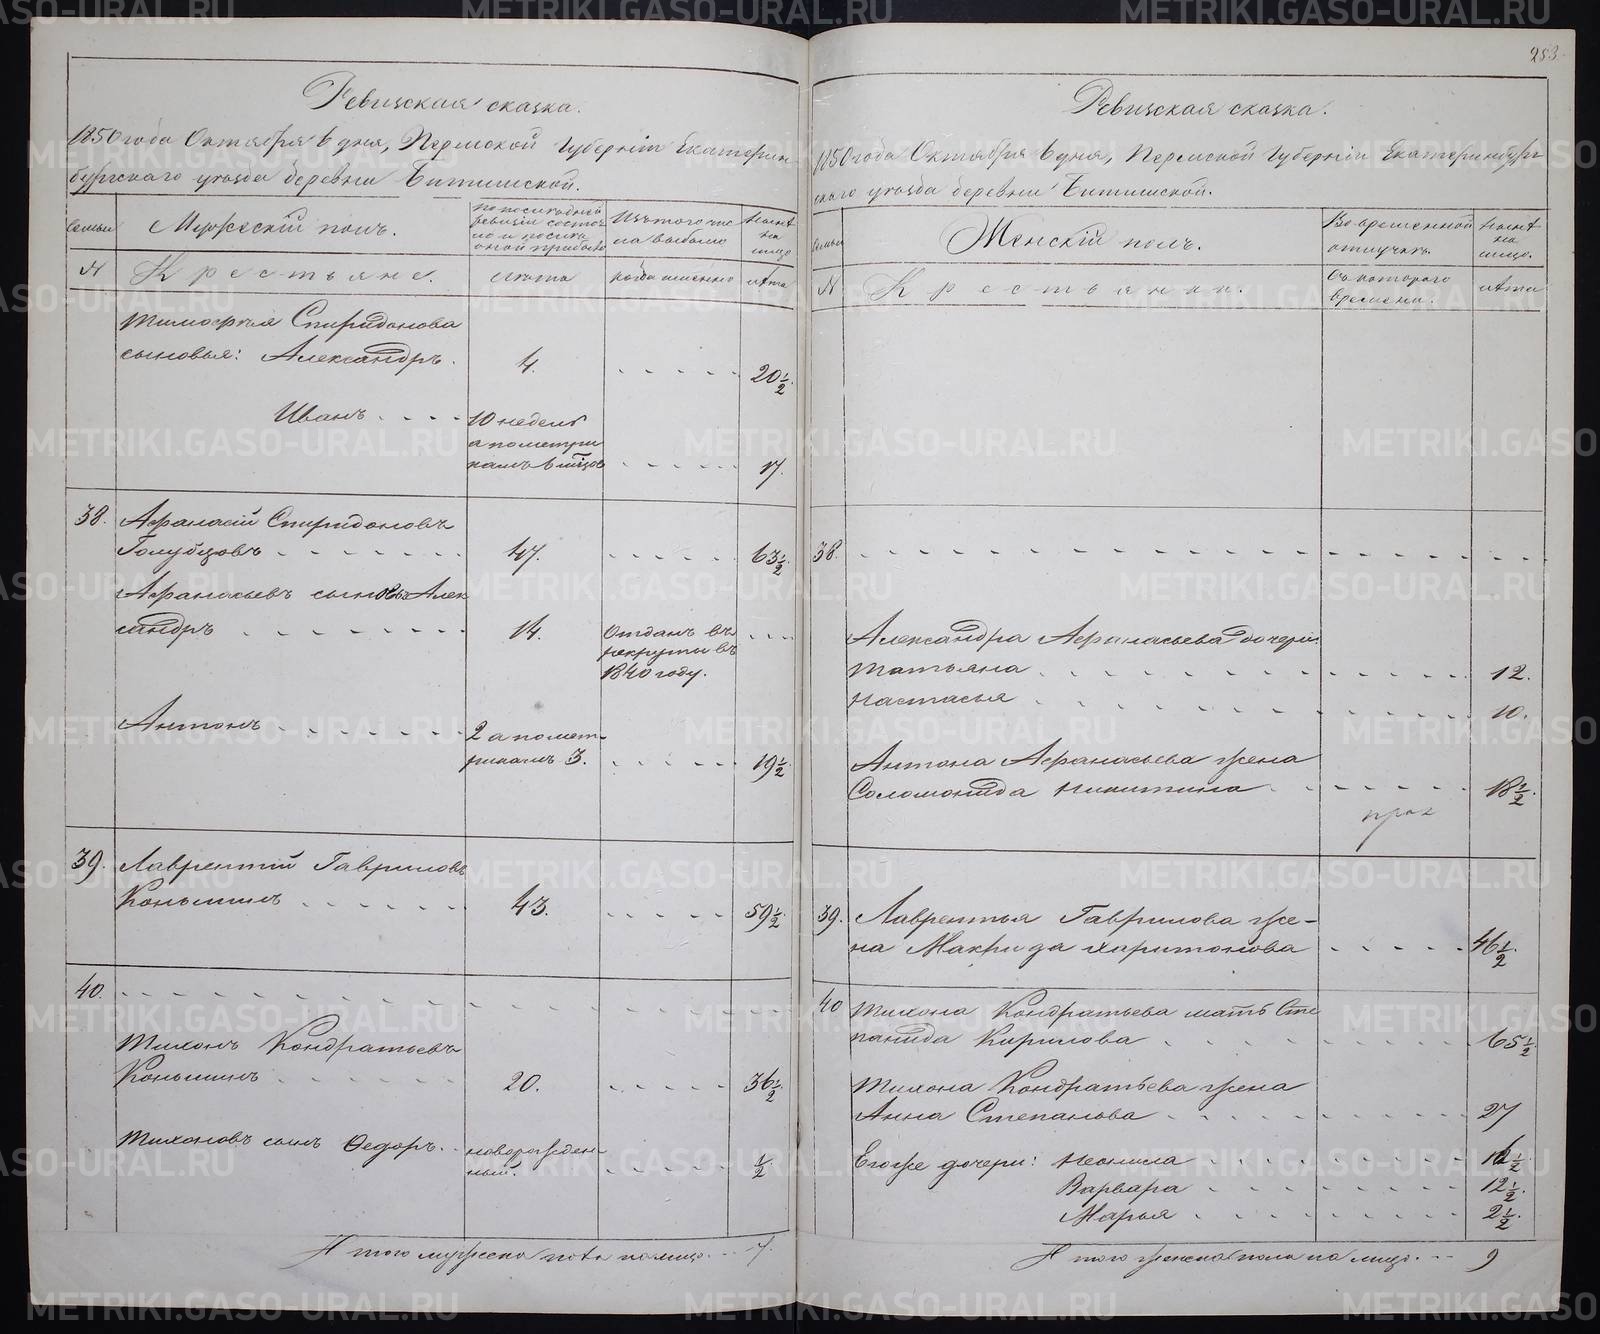 Ревизская сказка.
1850 года Октября 6 дня, Пермской Губерніи Екатерин-
бургскаго уѣзда деревни
Семьи
Мужескій полъ.
по последней
ревизіи состоя
ло и после
оной прибыло
Изъ того чис
ла выбыло
Нынѣ
на
лицо
№
Крестьяне.
лѣта
когда именно
лѣта
Тимофея Спиридонова
сыновья: Александръ.
4.
20 1/2.
Иванъ
10 недель
а по метри
камъ
17.
38.
Афанасій Спиридоновъ
Голубцовъ
47.
63 1/2.
Афанасьевъ сыновья Алек
сандръ
14.
Отданъ въ
рекруты въ
1840 году.
Антонъ
2 а по мет-
рикамъ 3.
19 1/2.
39.
Лаврентій Гавриловъ
Коньшинъ
43.
59 1/2.
40.
Тихонъ Кондратьевъ
Коньшинъ
20.
36 1/2.
Тихоновъ сынъ Федоръ
новорожден-
ный.
1/2
Итого мужеска пола на лицо 7.
253
Ревизская сказка.
1850 года Октября 6 дня, Пермской Губерніи Екатеринбург-
скаго уѣзда деревни
Семьи
Женскій полъ.
Во временной
отлучкѣ.
Нынѣ
на
лицо.
№
Крестьянки.
Съ котораго
времени.
лѣта
38.
Александра Афанасьева дочери
Татьяна
12.
Настасья
10.
Антона Афанасьева жена
Соломонида Никитина
18 1/2.
39.
Лаврентья Гаврилова же-
на Макрида Харитонова
46 1/2.
40
Тихона Кондратьева мать Сте
панида Кирилова
65 1/2.
Тихона Кондратьева жена
Анна Степанова
27
Егоже дочери: Неонила
Варвара
12 1/2.
Марья
2 1/2.
Итого женска пола на лицо 9
METRIKI.GASO-URAL.RU